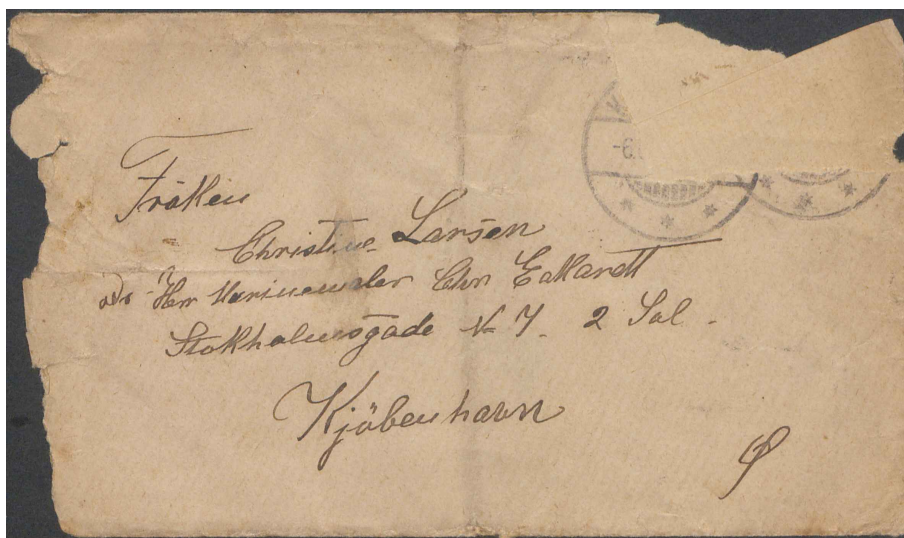 Fröken
Christine Larsen
Hr Marinemaler Chr Eckardt
Stokholmsgade No 7. 2 Sal.
Kjöbenhavn
Ø
-6.